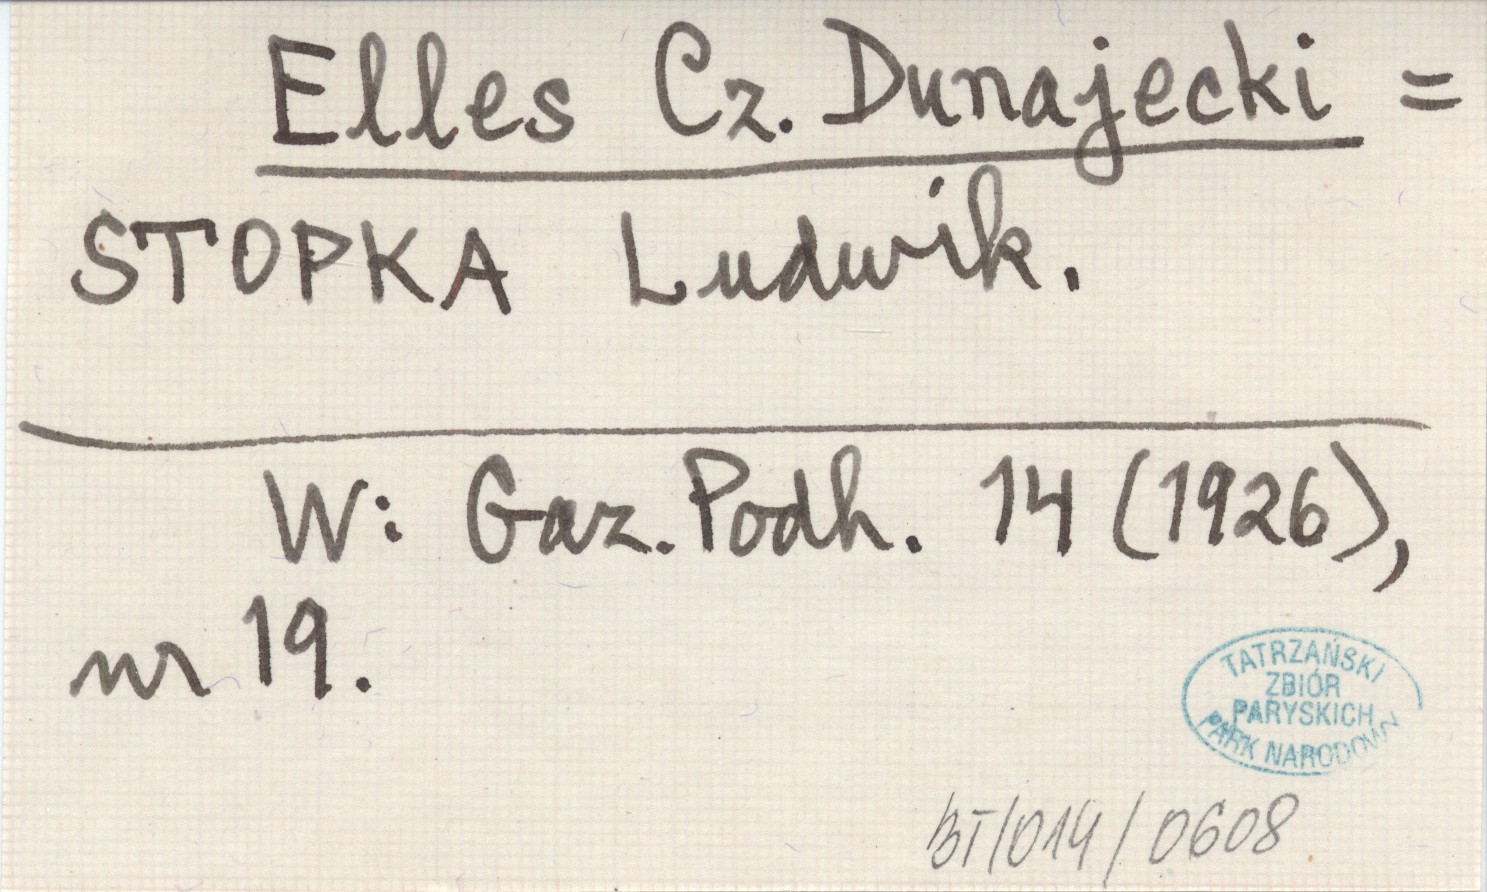 Elles Cz. Dunajecki =
STOPKA Ludwik.
W: Gaz. Podh. 14 (1926),
nr 19.
TATRZAŃSKI
ZBIÓR
PARYSKICH
PARK NARODOWY
BT/014/0608